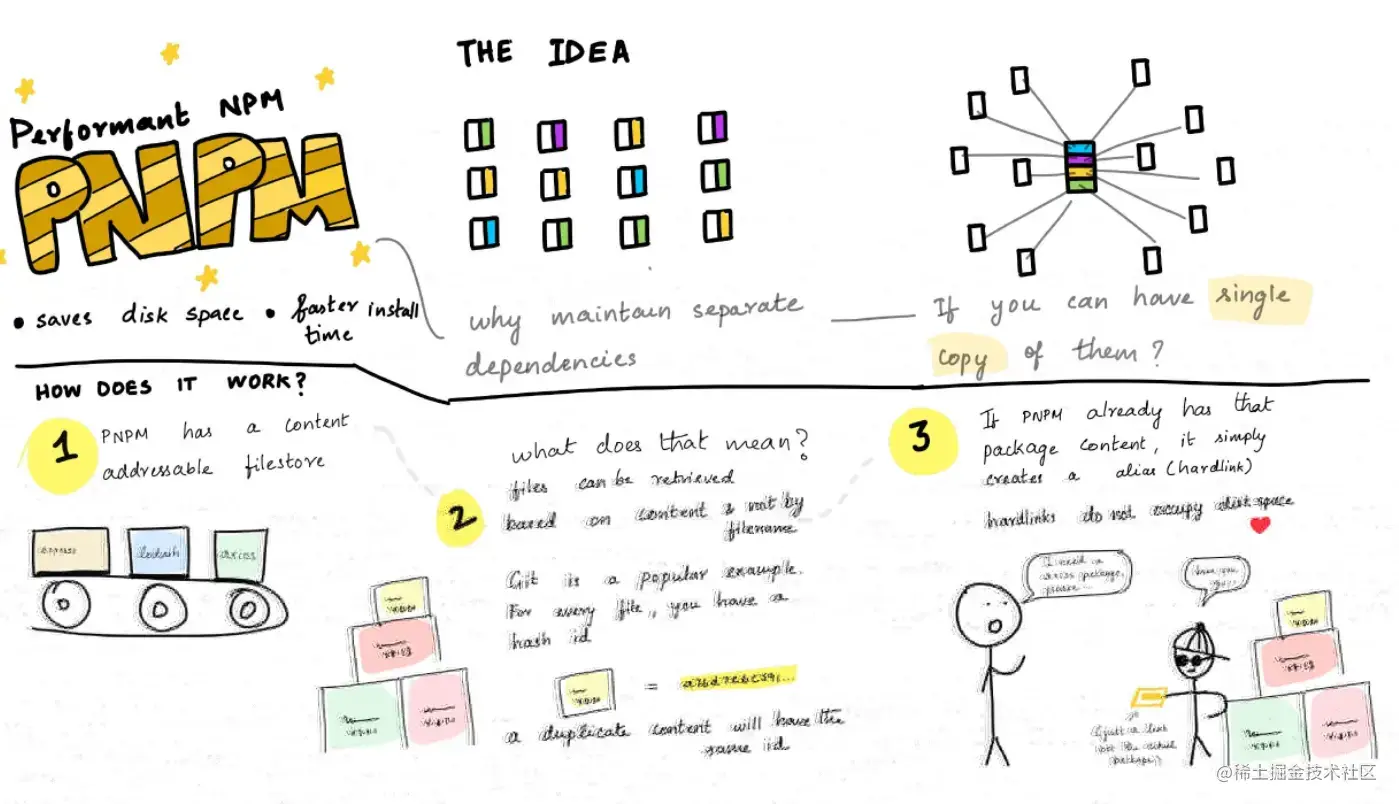 Performant NPM
PNPM
• saves disk space • faster install
time
THE IDEA
why maintain separate
dependencies
If you can have single
copy of them?
HOW DOES IT WORK?
1
PNPM has a content
addressable filestore
express
lodash
axios
2
what does that mean?
files can be retrieved
based on content & not by
filename
Git is a popular example.
For every file, you have a
hash id
=
a duplicate content will have the
same id
3
If PNPM already has that
package content, it simply
creates a alias (hardlink)
hardlinks do not occupy disk space
I need a
axios package,
please
here you
go
just a link
not the actual
package
@稀土掘金技术社区